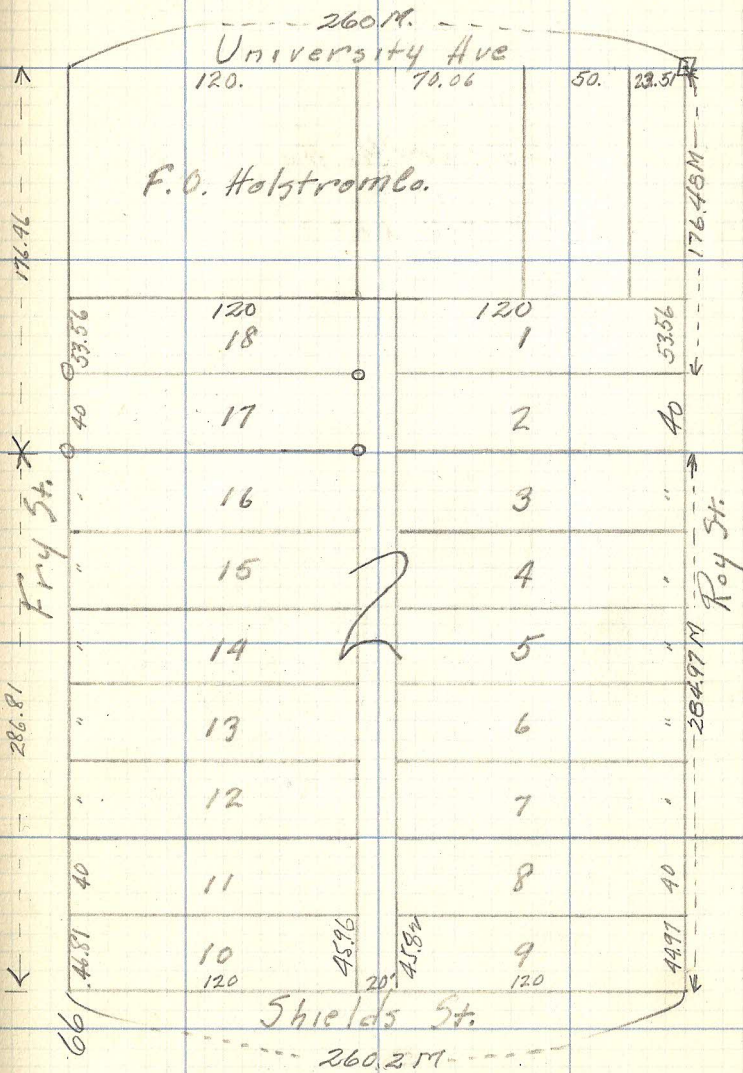 260 M.
University Ave
120. 70.06 50. 23.51
F.O. Holstrom Co.
176.46
176.48 M
120 120
53.56 18 1 53.56
40 17 2 40
Fry St.
16 3 "
" 15 4 "
Roy St.
" 14 5 "
2
286.81
284.97 M
" 13 6 "
" 12 7 "
40 11 8 40
46.81 10 45.96 45.82 9 44.97
120 20' 120
66
Shields St.
260.2 M